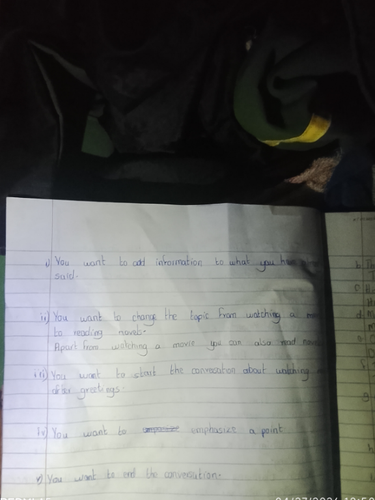 i) You want to add information to what you have
said.
iii) You want to change the topic from watching a
to reading novels.
Apart from watching a movie you can also read
iii) You want to start the convocation about watching
after greetings
iv) You want to emphasize a point
v) You want to end the conversation.